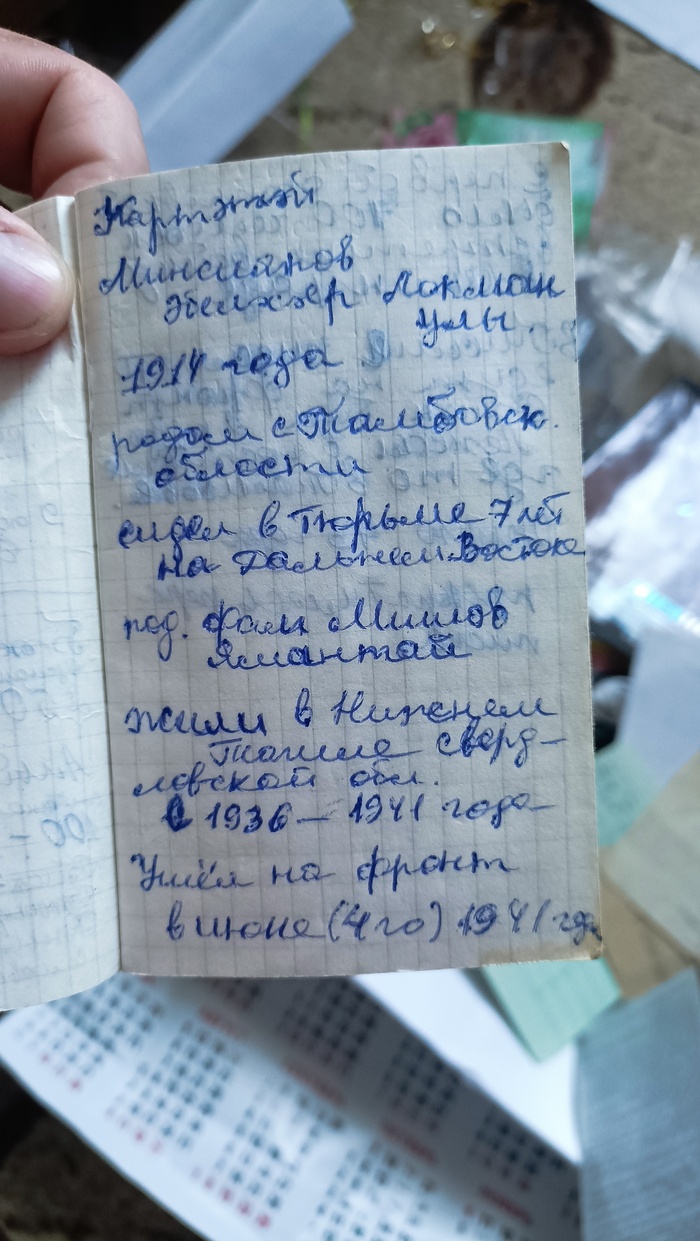 Картәтәй
Минсиянов
Әбелхәер Локман
улы
1914 года
родом с Тамбовск.
области
сидел в Тюрьме 7 лет
на Дальнем Востоке
под. фами Миилов
Ямантай
жили в Нижнем
Тагиле сверд-
ловской обл.
с 1936 – 1941 года
Ушёл на фронт
в июне (4го) 1941 год